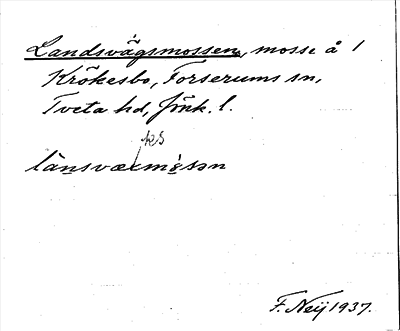 Landsvägsmossen, mosse å 1
Krökesbo, Forserums sn,
Tveta hd, Jönk. l.
F. Neij 1937.